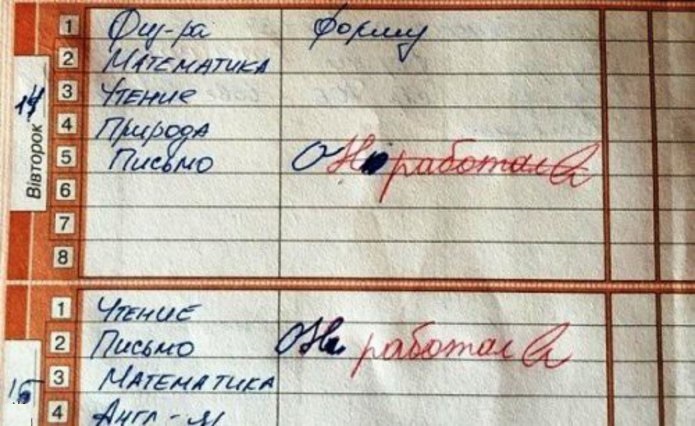 1 Физ-ра форму
2 Математика
14
3 Чтение
4 Природа
Вівторок
5 Письмо Он работал
6
7
8
1 Чтение
2 Письмо Он работал
3 Математика
15
4 Англ-й